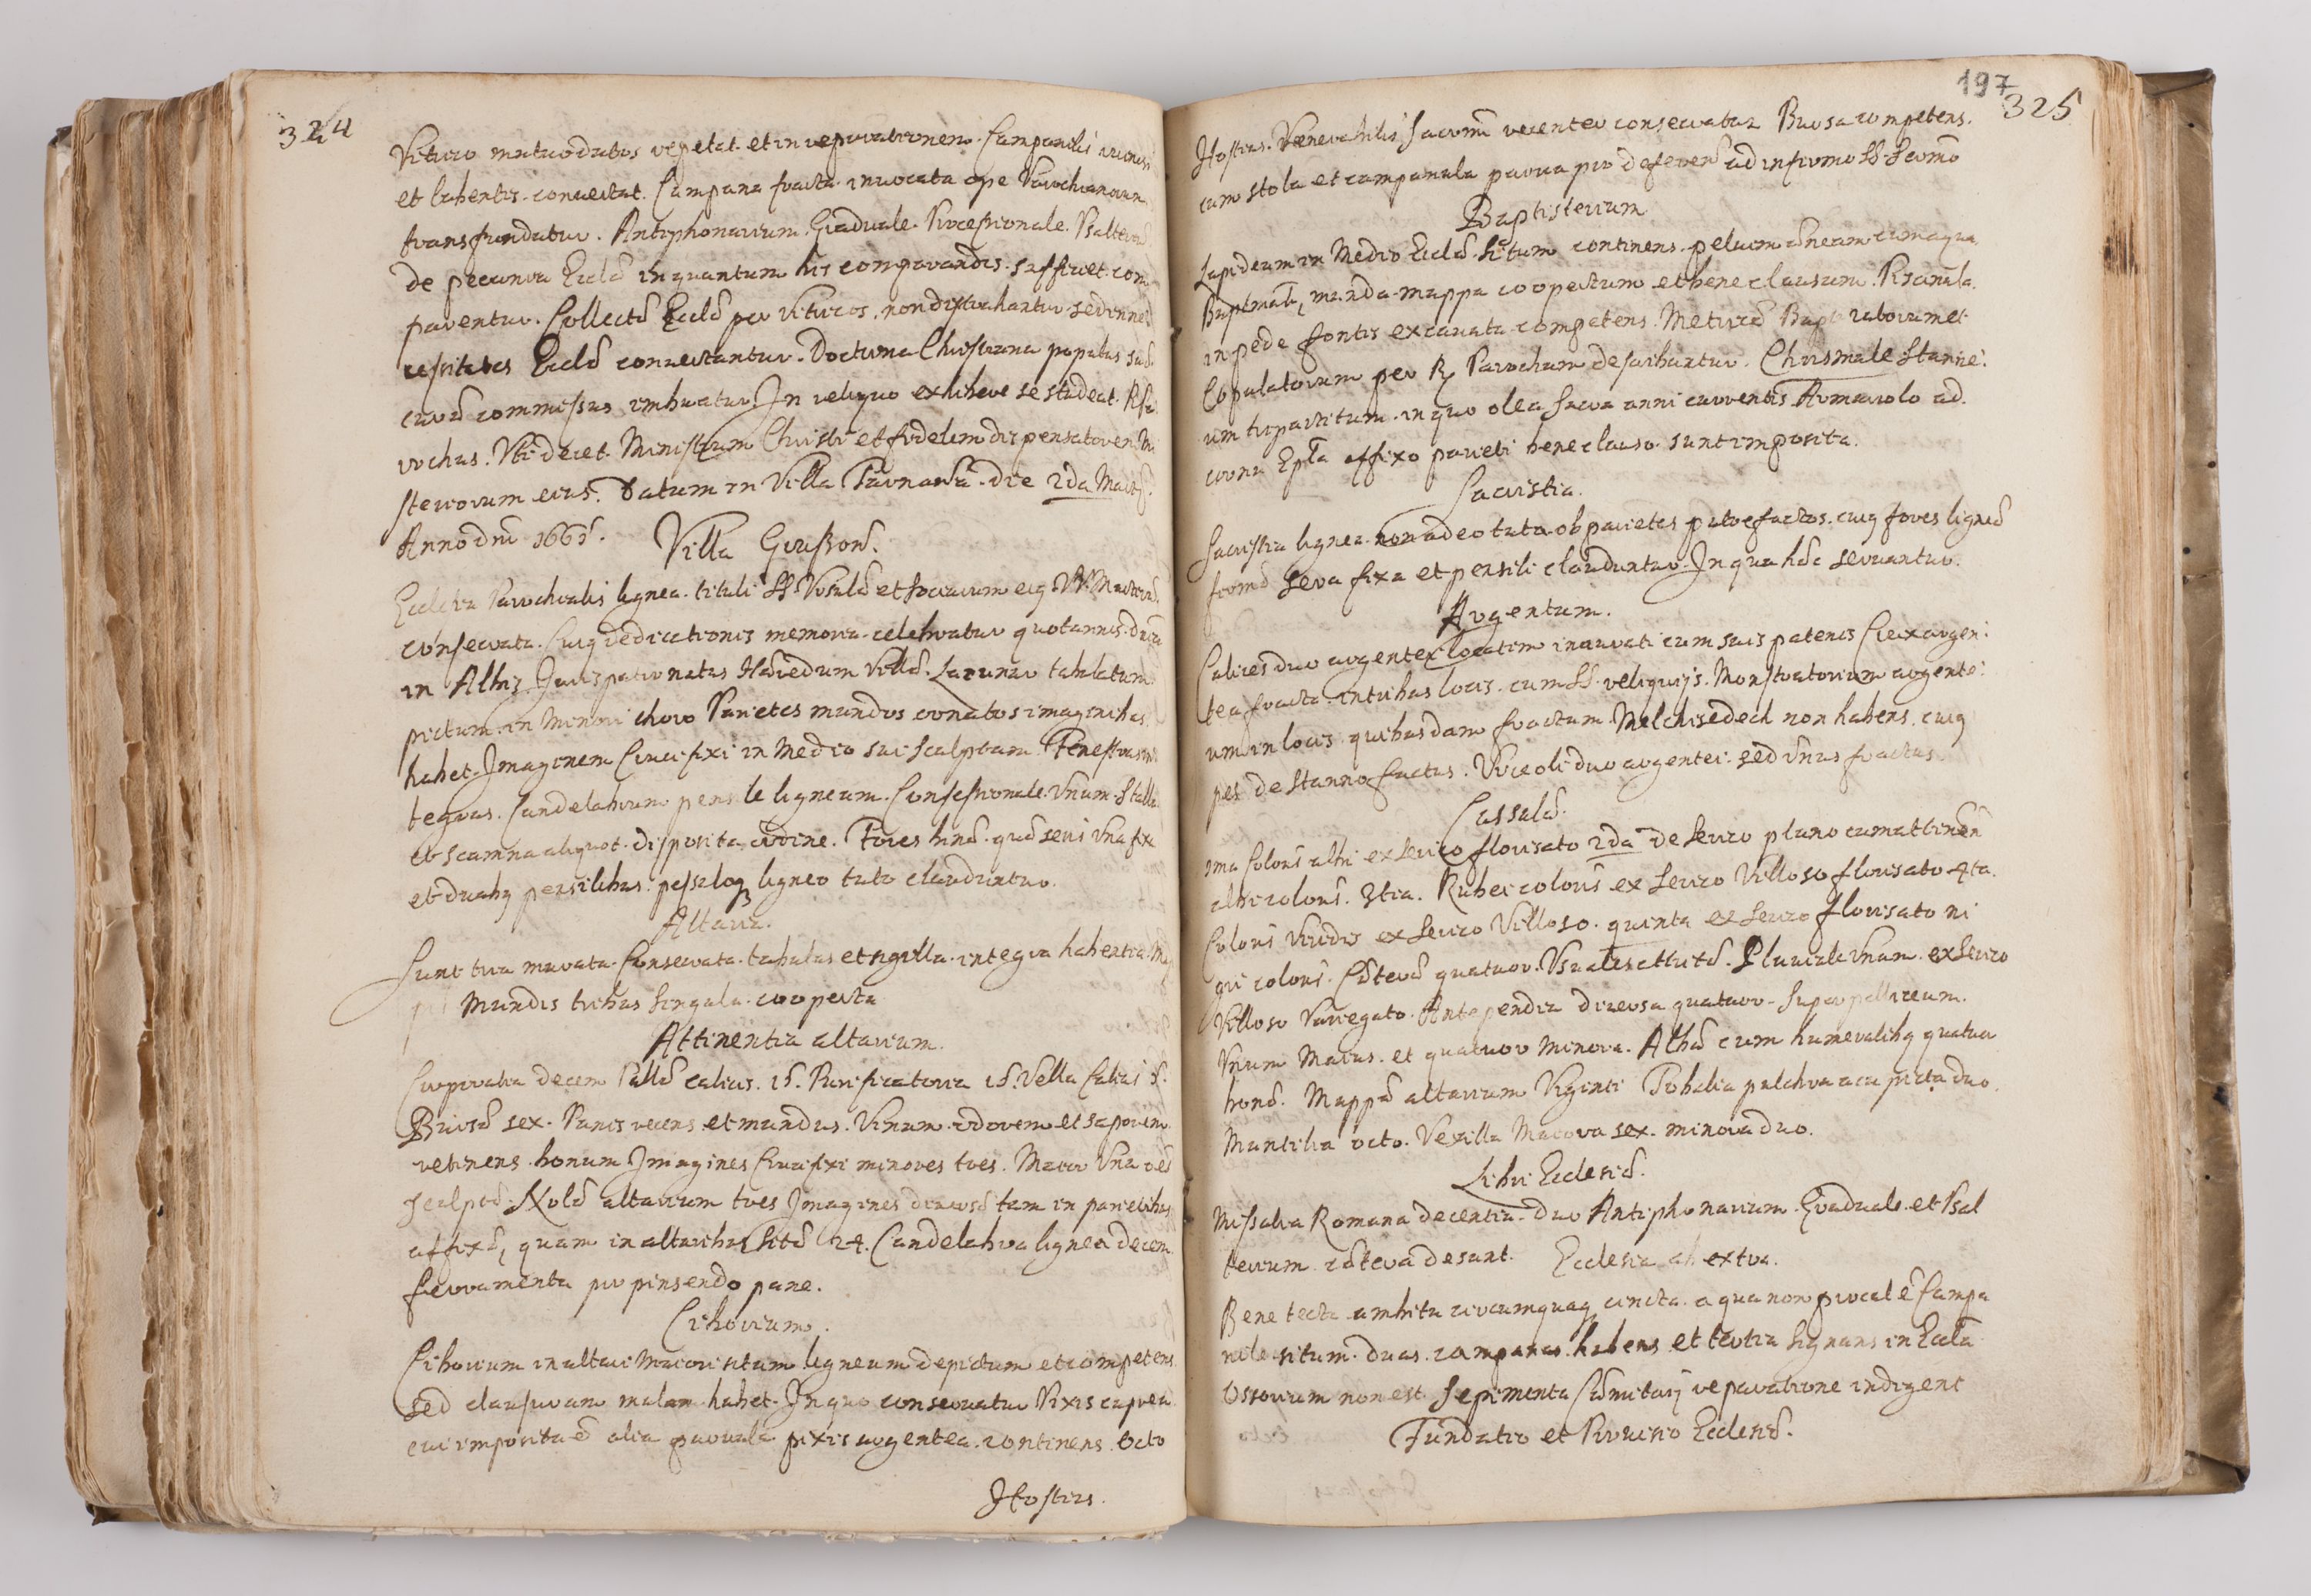 324
Vitrico mutuo datos repetat et in reparationem Campanilis
et labentis convertat. Campana fracta invocata ope Parochianorum
transfundatur. Antiphonarium. Graduale. Processionale. Psalteriũ
de pecunia Eccłæ in quantum his comparandis sufficiet com
parentur. Collectæ Eccłæ per Vitricos, non distrahantur sed in ne
cessitates Eccłæ convertantur. Doctrina Christiana populus suæ
curæ commissus imbuatur. In reliquo exhibere se studeat. R Pa
rochus. Uti decet Ministrum Christi et fidelem dispensatorem Mi
steriorum eius. Datum in Villa die 2da
Anno dni 1665.
Villa
Ecclesia Parochialis lignea. tituli SS. Ursulæ et Sociarum eiq VV. Martirũ
consecrata. Cuiq dedicationis memoria celebratur quotannis
in Albis. Jurispatronatus Hæredum Villæ. Lacunar tabulatum
pictum in Minori choro Parietes mundos ornatos imaginibus
habet. Imaginem Crucifixi in Medio sui sculptam. Fenestras in
tegras. Candelabrum pensile ligneum. Confessionale Unum. Stalla
et scamna aliquot disposita ordine. Fores binæ quæ seris una fixa
et duabq pensilibus pessuloq ligneo tuto clauduntur.
Altaria.
Sunt tria murata Consecrata. tabulas et sigilla integra habentia
Mundis tribus singula cooperta
Attinentia altarium.
Corporalia decem Pallæ calicis. 15. Purificatoria 15. Vella Calicis 5.
Bursæ sex. Panis recens et mundus. Vinum odorem et saporem
retinens bonum Imagines Crucifixi minores tres. Maior Una
sculptæ. Nolæ altarium tres Imagines diversæ tam in parietibus
affixæ, quam in altaribus sitæ 24. Candelabra lignea decem
ferramenta pro pinsendo pane.
Ciborium.
Ciborium in altari Maiori situm ligneum depictum et competens
sed clausuram malam habet. In quo conservatur Pixis cuprea
cui imposita ẽ alia parvula pixis argentea continens octo
Hostias.
197
325
Hostias. Venerabilis Sacrmi recenter consecratur Bursa competens
cum stola et campanula parva pro deferenð ad infirmos SS. Scrmo
Baptisterium
Lapideum in Medio Eccłæ situm continens pelvim æneam cum aqua
Baptmali, munda mappa coopertum et bene clausum. Piscinula
in pede fontis excavata competens. Metricæ Baptizatorum et
Copulatorum per R Parochum describuntur. Chrismale Stanne:
um tripartitum in quo olea sacra anni currentis Armariolo ad
cornu Epla affixo parieti bene clauso sunt imposita.
Sacristia.
Sacristia lignea non adeo tuta ob parietes putrefactos. cuiq fores ligneæ
firmæ sera fixa et pensili clauduntur. In qua hæc servantur.
Argentum.
Calices duo argentei locatim inaurati cum suis patenis Crux argen:
tea fracta in tribus locis. cum SS. reliquijs. Monstratorium argente:
um in locis quibusdam fractum. Melchisedech non habens, cuiq
pes de Stanno factus. Urceoli duo argentei sed unus fractus
Cassulæ.
1ma Coloris albi ex serico florisato 2da de Serico plano cum attinenñ
albi coloris. 3tia. Rubei coloris ex Serico Villoso florisato 4ta.
Coloris Viridis ex Serico Villoso. quinta ex Serico florisato ni
gri coloris. Cæteræ quatuor Usuales attritæ. Pluviale Unum ex Serico
Villoso Variegato. Antependia diversa quatuor. Superpelliceum
Unum Maius. et quatuor Minora. Albæ cum humeralibq quatuor
bonæ. Mappæ altarium Viginti Tobalia pulchra acu picta duo
Mantilia octo. Vexilla Maiora sex. minora duo.
Libri Ecclesiæ.
Missalia Romana decentia duo Antiphonarium. Graduale et Psal
terium cætera desunt. Ecclesia ab extra.
Bene tecta ambitu circumquaq cincta a qua non procul ẽ Campa
nile situm duas campanas habens et tertia signans in Eccla
Ossorium non est Sepimenta Cæmiterij reparatione indigent
Fundatio et Provisio Ecclesiæ.